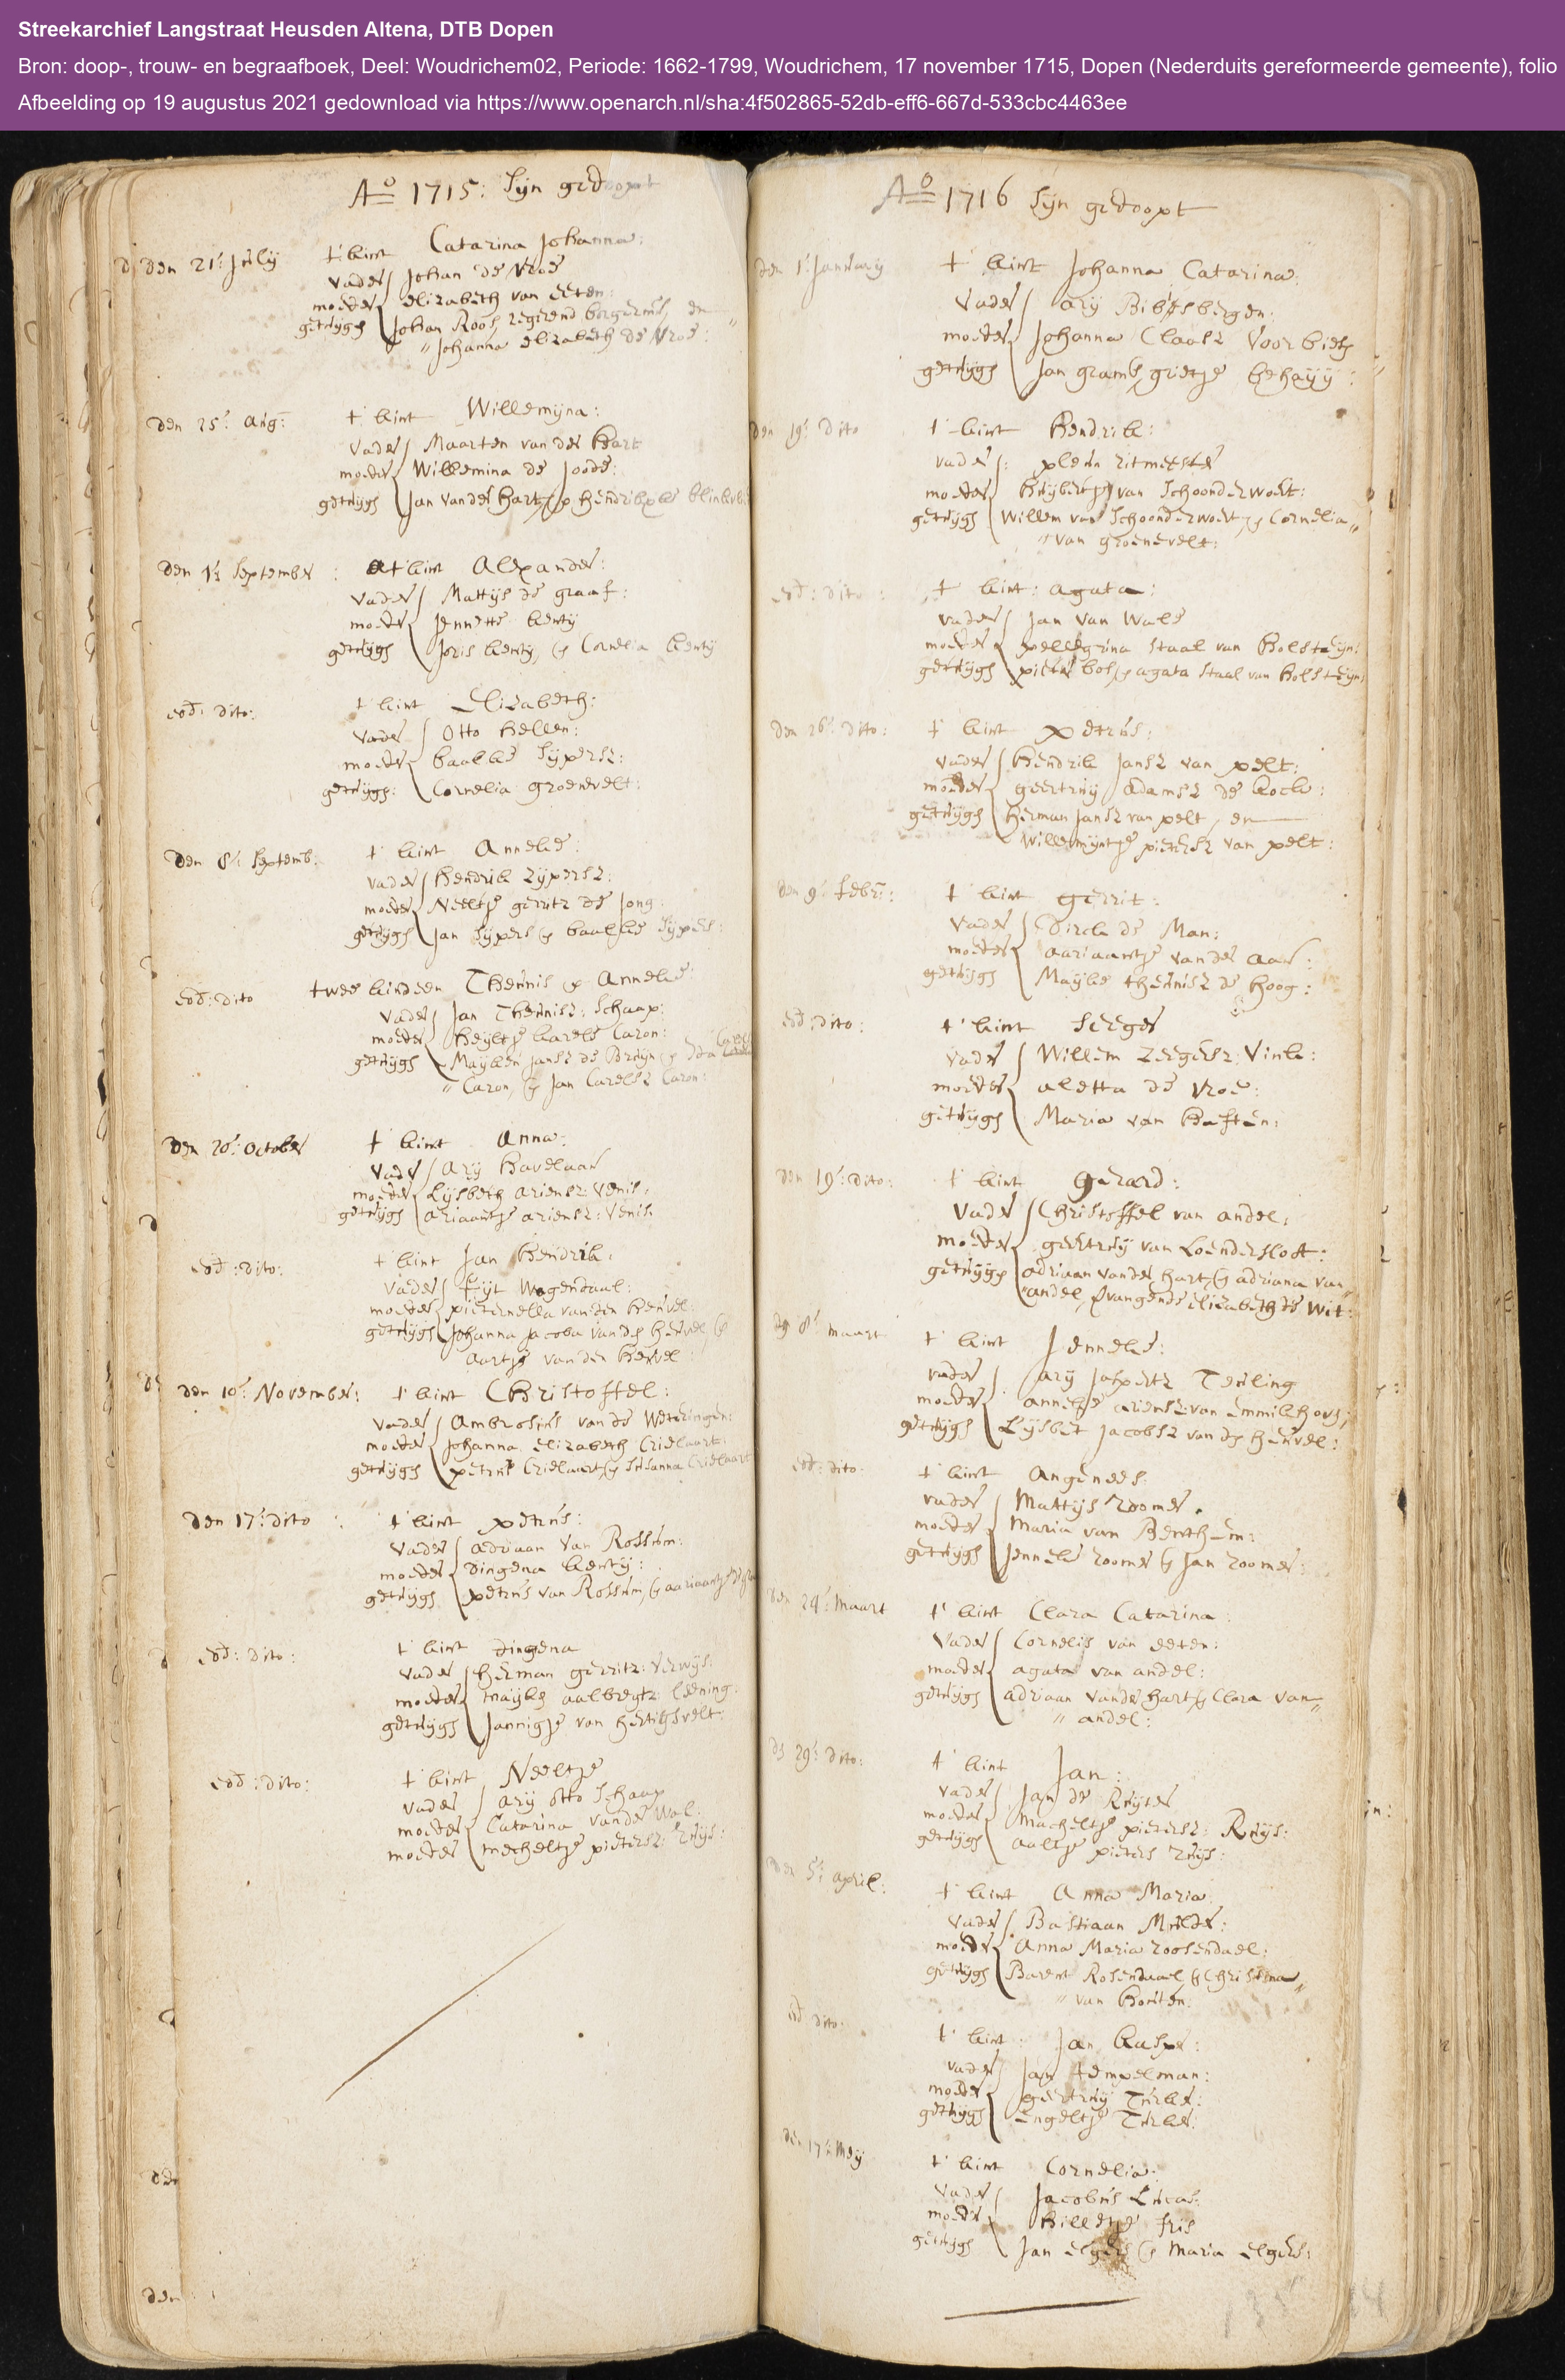 Streekarchief Langstraat Heusden Altena, DTB Dopen
Bron: doop-, trouw- en begraafboek, Deel: Woudrichem02, Periode: 1662-1799, Woudrichem, 17 november 1715, Dopen (Nederduits gereformeerde gemeente), folio
Afbeelding op 19 augustus 2021 gedownload via https://www.openarch.nl/sha:4f502865-52db-eff6-667d-533cbc4463ee
Ao 1715: Sijn gedoopt
den 21: Julij t' kint Catarina Johanna:
vader Johan de Vroe
moeder elizabeth van eeten:
getuijgh Johan Roos, regerend borgerm:, en
Johanna elizabeth de Vroe:
den 25: aug: t' kint Willemijna:
vader Maarten van der Hart
moeder Willemina de Joode:
getuijgh Jan vander hart,
den september : t kint Alexander:
vader Mattijs de graaf:
moeder Jennette kentij
getuijgh Joris kentij, & Cornelia kentij
eod: dito: t kint Elizabeth:
vader Otto hellen:
moeder baalke Sijpersz:
getuijgh: Cornelia groenevelt:
den 8: septemb: t' kint Anneke:
vader hendrik zijpersz:
moeder Neeltje gerritz de Jong:
getuijgh Jan Sijpers & baalke Sijpers:
eod: dito twee kinderen Theunis & Anneke:
vader Jan Theunisz: Schaap:
moeder heyltje karels Caron:
getuijgh Maijken Jansz de Bruijn &
Caron, & Jan Carelsz Caron:
den 20: October t kint Anna:
vader Arij havelaar
moeder Lijsbeth ariensz: Venis:
getuijgh ariaantje ariensz: Venis
eod: dito: t kint Jan Hendrik:
vader Fijt Wagendaal:
moeder pieternella van den heuvel:
getuijgh Johanna Jacoba van den heuvel &
aartje van den heuvel:
den 10: November: t' kint Christoffel:
vader Ambrosius van de Weteringen:
moeder Johanna elizabeth Crielaart:
getuijgh petrus Crielaart, & Susanna Crielaart
den 17: dito : t kint petrus:
vader adriaan van Rossum:
moeder Dingena kentij:
getuijgh petrus van Rossum, & aariaantje
eod: dito: t kint dingena
vader herman gerritz: Verwijs:
moeder maijke aalbregtz:
getuijgh Jannigje van hertighsvelt:
eod: dito: t kint Neeltje
vader arij otto Schaap
moeder Catarina vander Wal:
moeder mecheltje pietersz: Ruijs:
Ao 1716 Sijn gedoopt
den 1: Januarij t kint Johanna Catarina:
vader arij Bibesbergen:
moeder Johanna Claasz Voorbieth
getuijgh Jan gramb, grietje
den 19: dito t kint hendrik:
vader: pleun ritmeester
moeder huijbertje van Schoonderwoert:
getuijgh Willem van Schoonderwoert, & Cornelia
van groenevelt:
eod: dito : t kint: agata:
vader Jan van Wale
moeder pellegrina Staal van holsteijn:
getuijgh pieter bos, & agata Staal van holsteijn:
den 26: dito: t kint petrus:
vader hendrik Jansz van pelt:
moeder geertruij Adamsz de kock:
getuijgh herman Jansz van pelt, en
Willemijntje pietersz van pelt:
den 9: febr: t kint gerrit:
vader Dirck de Man:
moeder aariaantje vander aar:
getuijgh Maijke theunisz de hoog:
eod: dito: t' kint Seeger
vader Willem Zeegersz: Vink:
moeder aletta de Vroe:
getuijgh Maria van haften:
den 19: dito: t' kint Gerard:
vader Christoffel van andel:
moeder geertruij van Loendersloot:
getuijgh adriaan vander hart, & adriana van
andel, vangende elizabeth de Wit:
den 8: maart t' kint Jenneke:
vader arij Jaspertz Teuling
moeder anneke ariensz: van emmikhoven:
getuijgh Lijsbet Jacobsz van den heuvel:
eod: dito: t kint Angenees:
vader Mattijs roomer.
moeder Maria van Benthem:
getuijgh Jenneke roomer & Jan roomer:
den 24: maart t' kint Clara Catarina:
vader Cornelis van eeten:
moeder agata van andel:
getuijgh adriaan vander hart, & Clara van
andel:
29: dito: t' kint Jan:
vader Jan de Ruijter
moeder Macheltje pietersz: Ruijs:
getuijgh aaltje pieters ruijs:
den 5: april: t kint Anna Maria
vader Bastiaan Mulder:
moeder Anna Maria roosendael:
getuijgh Barent Rosendaal, & Christina
van houten:
eod dito: t' kint: Jan kasper:
vader Jan tempelman:
moeder geertruij Turke:
getuijgh Engeltje Turke:
den 17: Meij t' kint Cornelia:
vader Jacobus Lucas:
moeder hilletje fris
getuijgh Jan elgers & Maria elgers: